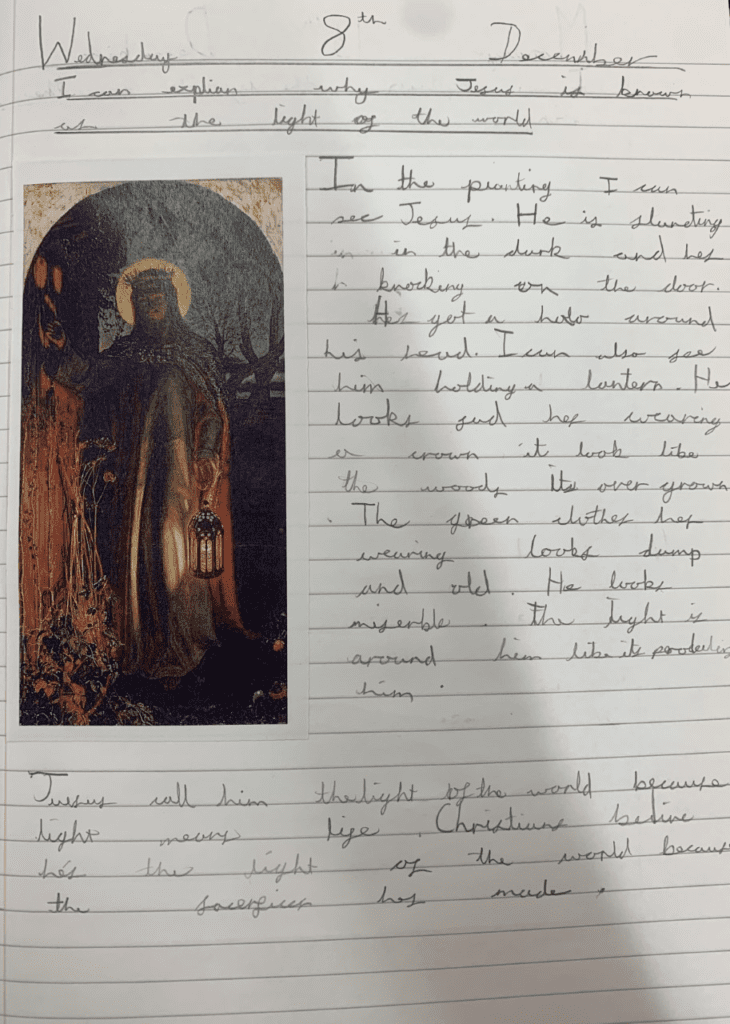 Wednesday 8th December
I can explian why Jesus is known
as the light of the world
In the painting I can
see Jesus. He is standing
in the dark and hes
knocking on the door.
Hes got a halo around
his head. I can also see
him holding a lantern. He
looks sad hes wearing
a crown it look like
the woods its over grown
. The green clothes hes
wearing looks damp
and old. He looks
miserble. The light is
around him like its
him.
Juesus call him the light of the world because
light means life. Christians belive
he's the light of the world because
the hes made.